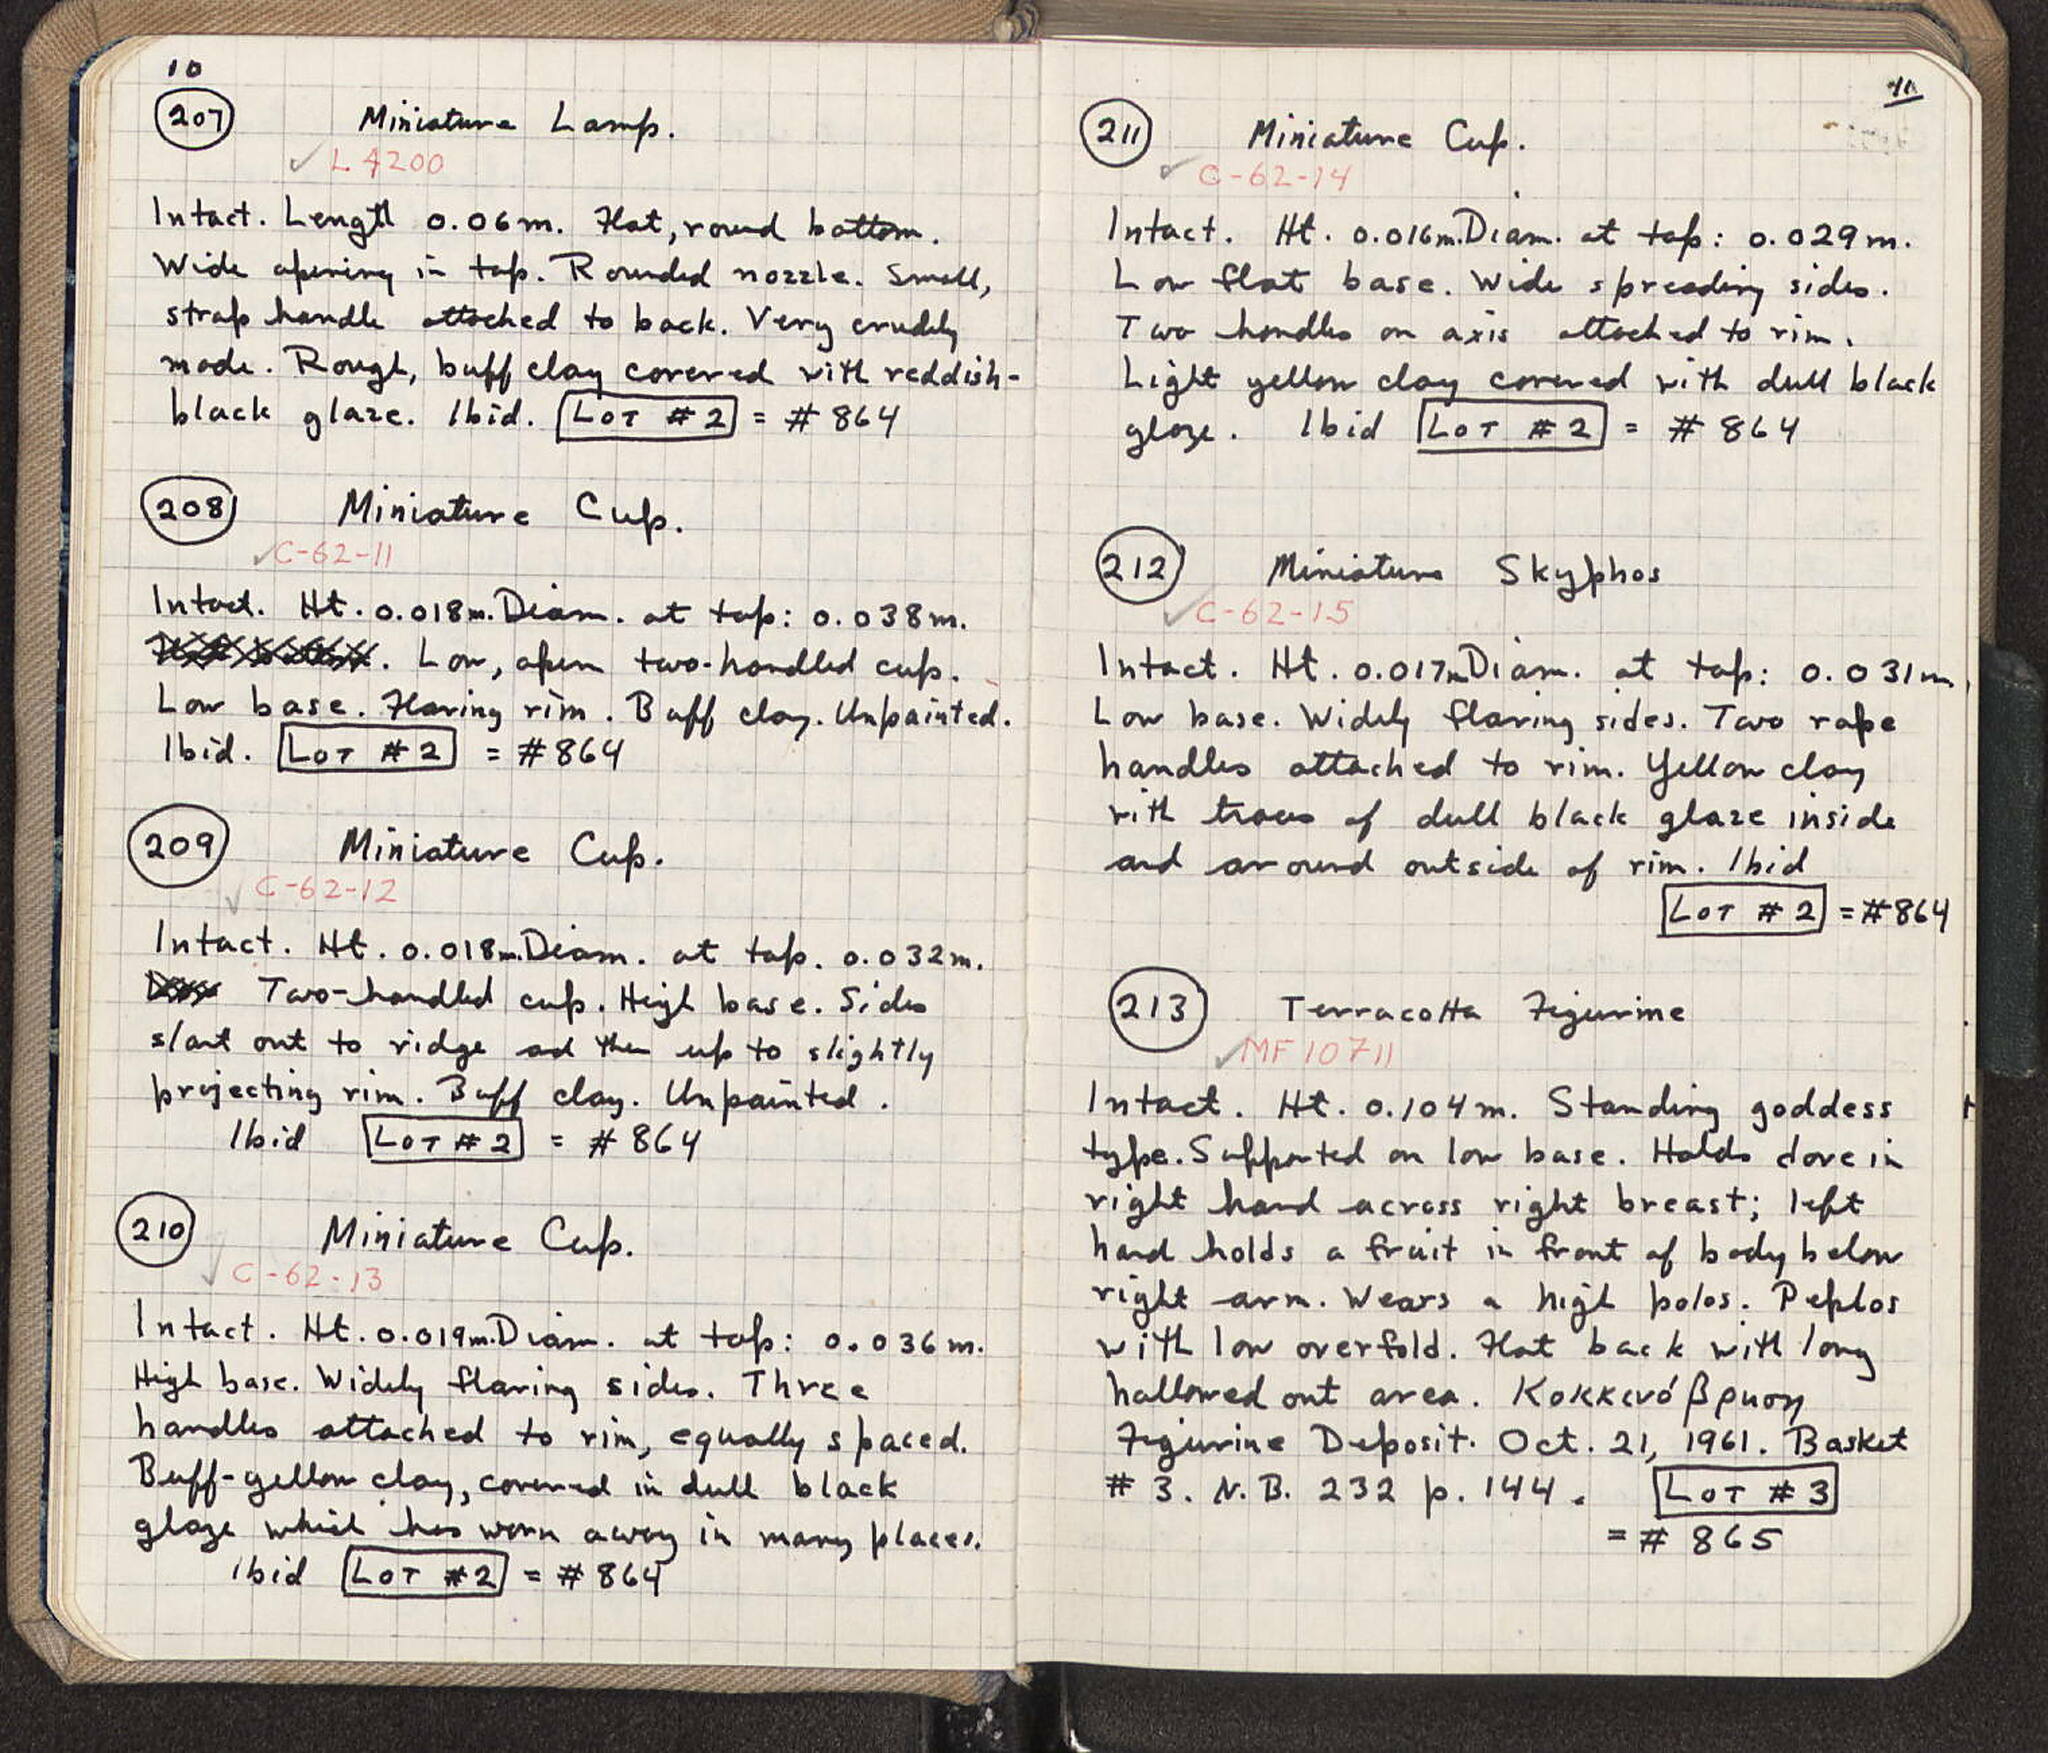 10
207 Miniature Lamp.
✓ L4200
Intact. Length 0.06m. Flat, round bottom.
Wide opening in top. Rounded nozzle. Small,
strap handle attached to back. Very crudely
made. Rough, buff clay covered with reddish-
black glaze. Ibid. LOT #2 = #864
208 Miniature Cup.
✓ C-62-11
Intact. Ht. 0.018m. Diam. at top: 0.038m.
. Low, open two-handled cup.
Low base. Flaring rim. Buff clay. Unpainted.
Ibid. LOT #2 = #864
209 Miniature Cup.
✓ C-62-12
Intact. Ht. 0.018m. Diam. at top. 0.032m.
Two-handled cup. High base. Sides
slant out to ridge and then up to slightly
projecting rim. Buff clay. Unpainted.
Ibid LOT #2 = #864
210 Miniature Cup.
✓ C-62-13
Intact. Ht. 0.019m. Diam. at top: 0.036m.
High base. Widely flaring sides. Three
handles attached to rim, equally spaced.
Buff-yellow clay, covered in dull black
glaze which has worn away in many places.
Ibid LOT #2 = #864
11
211 Miniature Cup.
✓ C-62-14
Intact. Ht. 0.016m. Diam. at top: 0.029m.
Low flat base. Wide spreading sides.
Two handles on axis attached to rim.
Light yellow clay covered with dull black
glaze. Ibid LOT #2 = #864
212 Miniature Skyphos
✓ C-62-15
Intact. Ht. 0.017m Diam. at top: 0.031m.
Low base. Widely flaring sides. Two rope
handles attached to rim. Yellow clay
with traces of dull black glaze inside
and around outside of rim. Ibid
LOT #2 = #864
213 Terracotta Figurine
✓ MF10711
Intact. Ht. 0.104m. Standing goddess
type. Supported on low base. Holds dove in
right hand across right breast; left
hand holds a fruit in front of body below
right arm. Wears a high polos. Peplos
with low overfold. Flat back with long
hollowed out area. Κοκκινόβρυση
Figurine Deposit. Oct. 21, 1961. Basket
#3. N.B. 232 p. 144. LOT #3
= #865